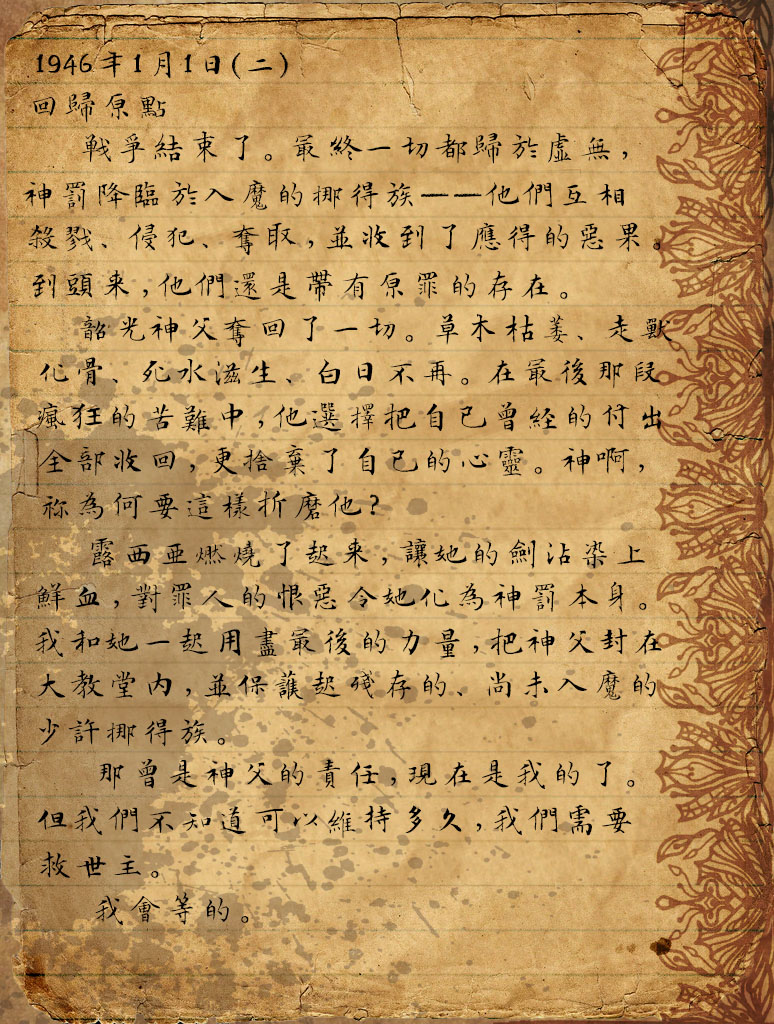 1946年1月1日(二)
回歸原點
戰爭結束了。最終一切都歸於虛無,
神罰降臨於入魔的挪得族——他們互相
殺戮、侵犯、奪取,並收到了應得的惡果。
到頭來,他們還是帶有原罪的存在。
韶光神父奪回了一切。草木枯萎、走獸
化骨、死水滋生、白日不再。在最後那段
瘋狂的苦難中,他選擇把自己曾經的付出
全部收回,更捨棄了自己的心靈。神啊,
祢為何要這樣折磨他?
露西亞燃燒了起來,讓她的劍沾染上
鮮血,對罪人的恨惡令她化為神罰本身。
我和她一起用盡最後的力量,把神父封在
大教堂內,並保護起殘存的、尚未入魔的
少許挪得族。
那曾是神父的責任,現在是我的了。
但我們不知道可以維持多久,我們需要
救世主。
我會等的。